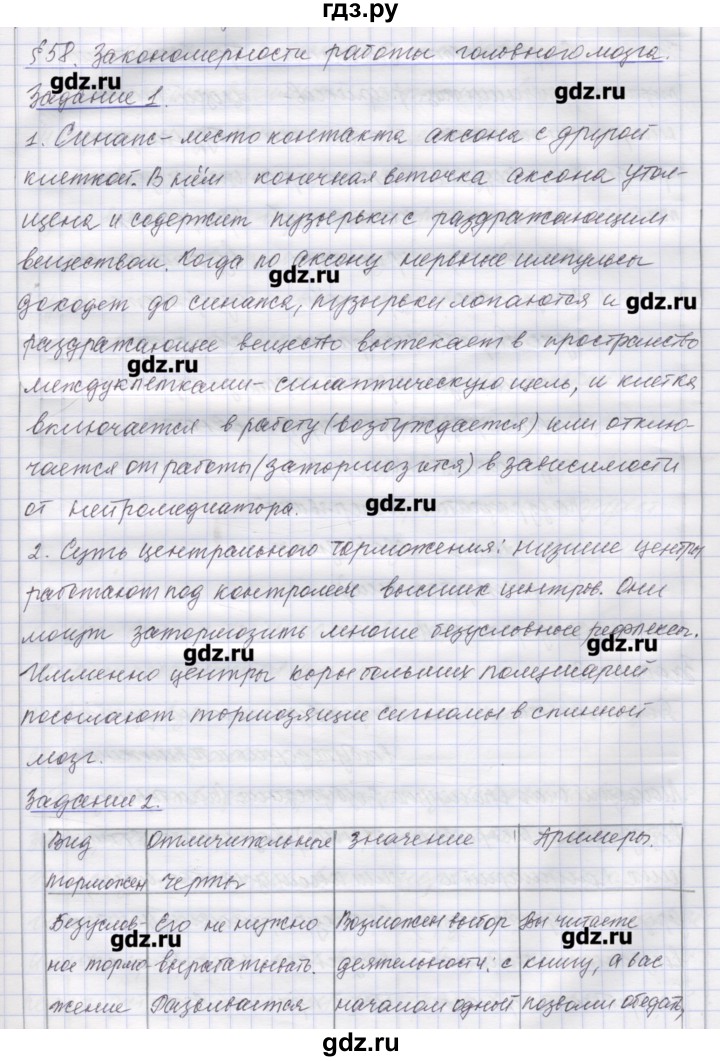 гдз.ру
§58. Закономерности работы головного мозга.
gdz.ru
gdz.ru
Задание 1.
1. Синапс - место контакта аксона с другой
клеткой. В нём конечная веточка аксона утол-
щена и содержит пузырьки с раздражающим
веществом. Когда по аксону нервные импульсы
gdz.ru
gdz.ru
доходят до синапса, пузырьки лопаются и
раздражающее вещество вытекает в пространство
gdz.ru
между клетками - синаптическую щель, и клетка
включается в работу (возбуждается) или отклю-
чается от работы (затормозится) в зависимости
от нейромедиатора.
gdz.ru
2. Суть центрального торможения: низшие центры
работают под контролем высших центров. Они
могут затормозить многие безусловные рефлексы.
gdz.ru
gdz.ru
Именно центры коры больших полушарий
посылают тормозящие сигналы в спинной
мозг.
Задание 2.
Вид Отличительные Значение Примеры.
торможен черты
Безуслов- Его не нужно Возможен выбор Вы читаете
gdz.ru
gdz.ru
ное тормо- вырабатывать. деятельности: с книгу, а вас
жение Развивается началом одной позвали обедать,
gdz.ru